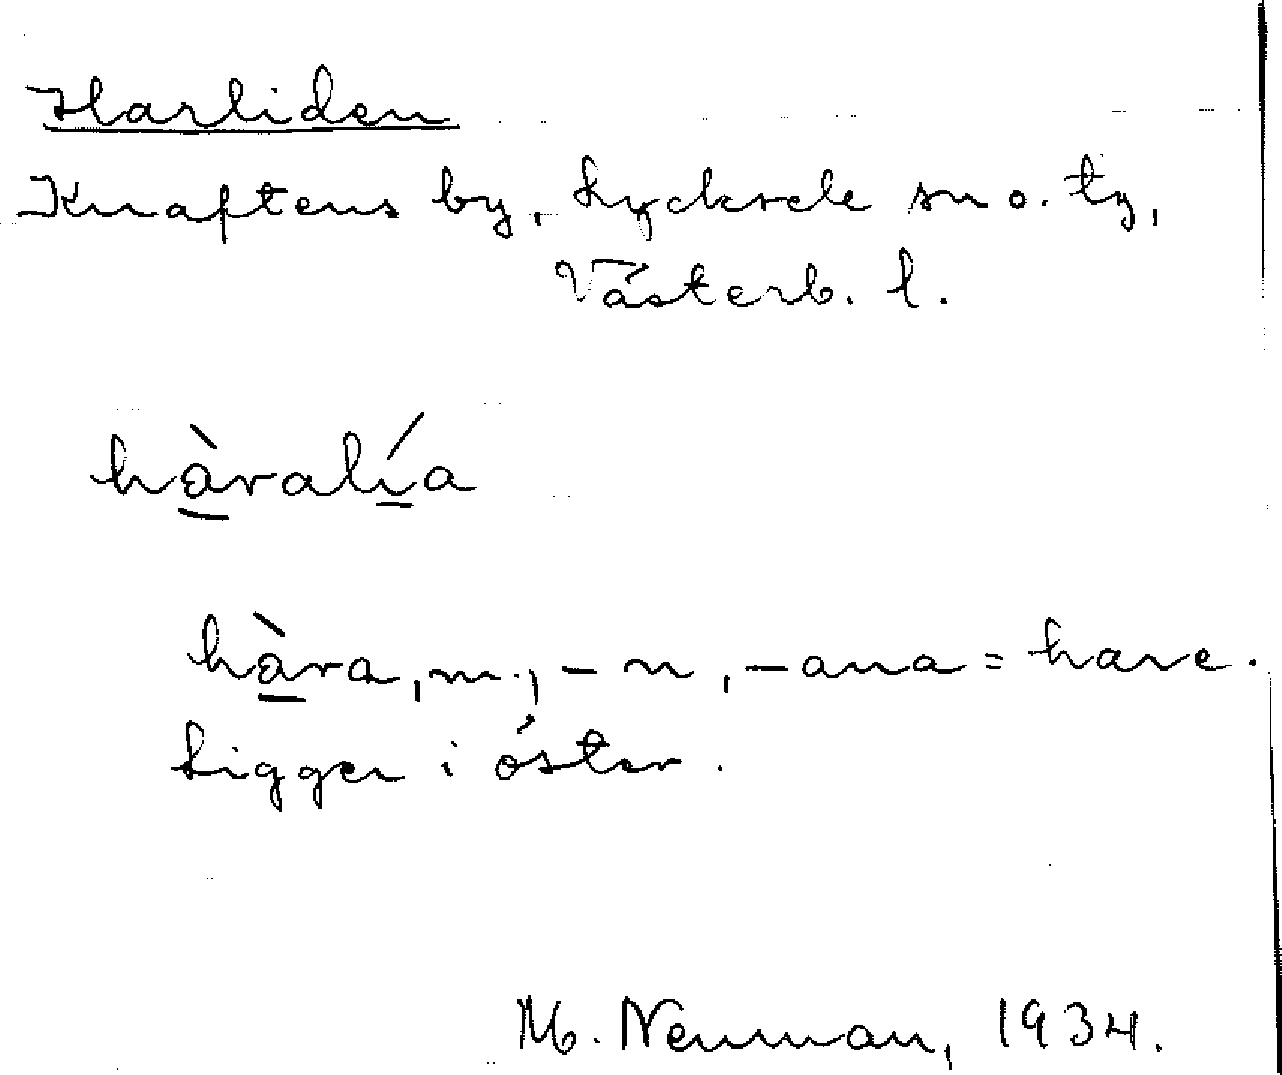 Harliden
Knaftens by, Lycksele sn o. tg,
Västerb. l.
hàralía
hàra, m., – n, – ana = hare.
Ligger i öster.
M. Neuman, 1934.